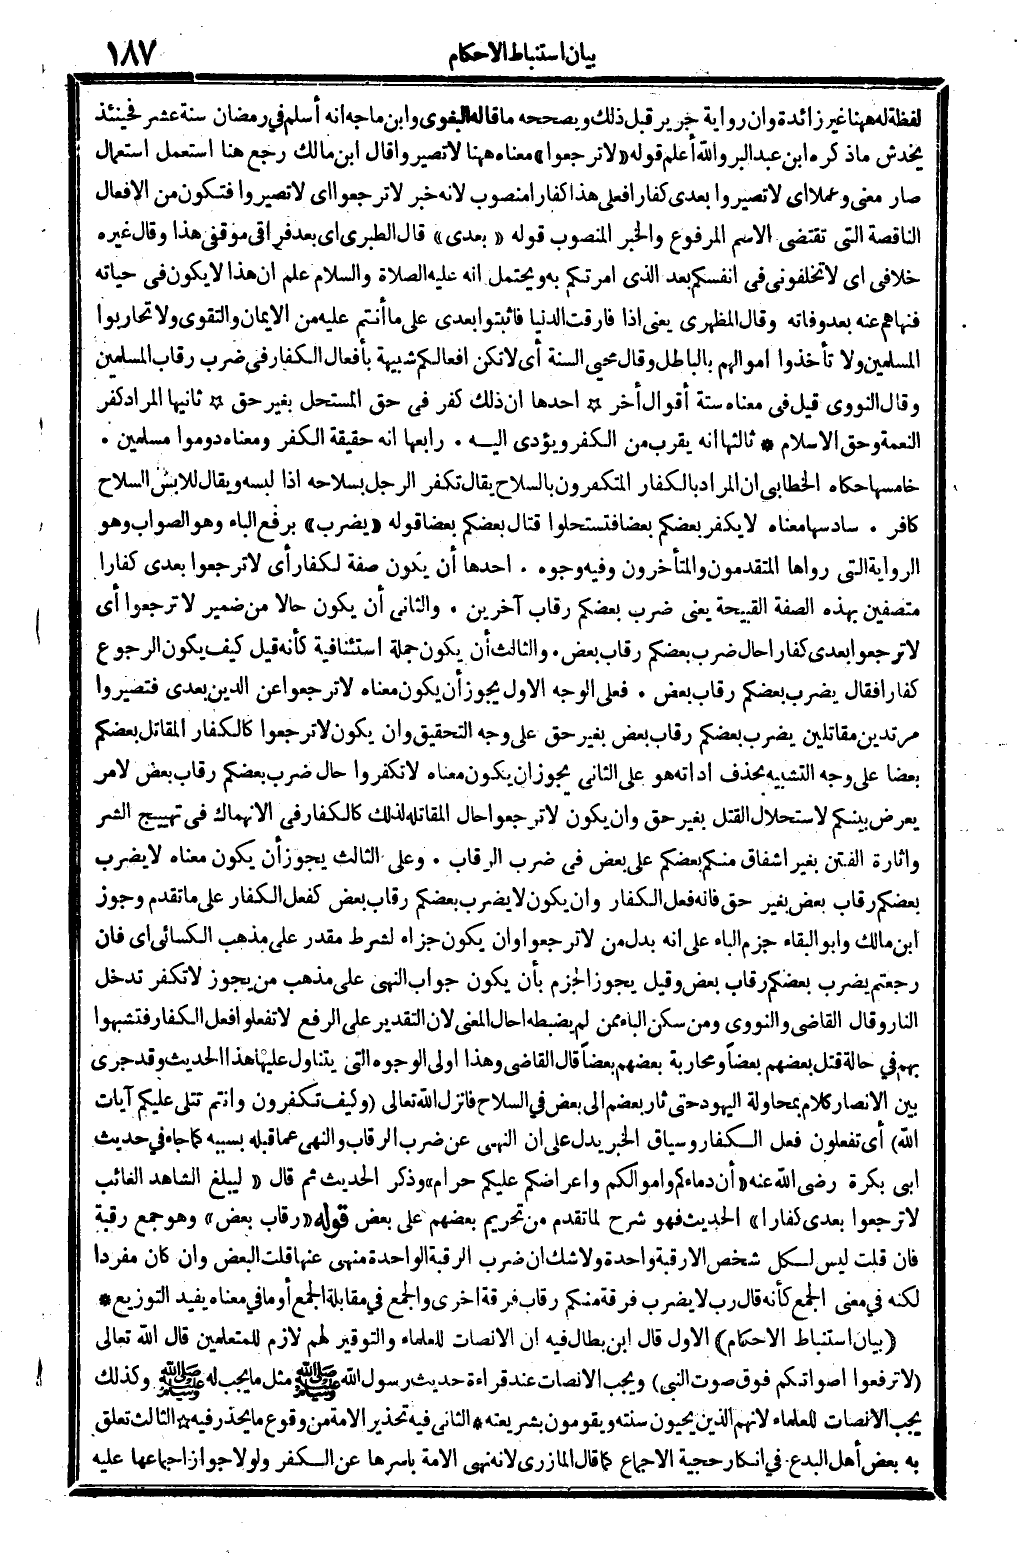 بيان استنباط الاحكام
١٨٧
لفظة له ههنا غير زائدة وان رواية جرير قبل ذلك ويصححه ما قاله البغوى وابن ماجه انه أسلم فى رمضان سنة عشر فحينئذ
يخدش ماذكره ابن عبد البر والله أعلم قوله «لا ترجعوا» معناه ههنا لا تصيروا قال ابن مالك رجع هنا استعمل استعمال
صار معنى وعملا اى لا تصيروا بعدى كفارا فعلى هذا كفارا منصوب لانه خبر لا ترجعوا اى لا تصيروا فتكون من الافعال
الناقصة التى تقتضى الاسم المرفوع والخبر المنصوب قوله «بعدى» قال الطبرى اى بعد فراقى موقفى هذا وقال غيره
خلافى اى لا تخلفونى فى انفسكم بعد الذى امرتكم به ويحتمل انه عليه الصلاة والسلام علم ان هذا لا يكون فى حياته
فنهاهم عنه بعد وفاته وقال المظهرى يعنى اذا فارقت الدنيا فاثبتوا بعدى على ما أنتم عليه من الايمان والتقوى ولا تحاربوا
المسلمين ولا تأخذوا اموالهم بالباطل وقال محيى السنة أى لا تكن افعالكم شبيهة بأفعال الكفار فى ضرب رقاب المسلمين
وقال النووى قيل فى معناه ستة أقوال أخر ☆ احدها ان ذلك كفر فى حق المستحل بغير حق ☆ ثانيها المراد كفر
النعمة وحق الاسلام * ثالثها انه يقرب من الكفر ويؤدى اليه . رابعها انه حقيقة الكفر ومعناه دوموا مسلمين .
خامسها حكاه الخطابى ان المراد بالكفار المتكفرون بالسلاح يقال تكفر الرجل بسلاحه اذا لبسه ويقال للابس السلاح
كافر . سادسها معناه لا يكفر بعضكم بعضا فتستحلوا قتال بعضكم بعضا قوله «يضرب» برفع الباء وهو الصواب وهو
الرواية التى رواها المتقدمون والمتأخرون وفيه وجوه . احدها أن يكون صفة لكفار أى لا ترجعوا بعدى كفارا
متصفين بهذه الصفة القبيحة يعنى ضرب بعضكم رقاب آخرين . والثانى أن يكون حالا من ضمير لا ترجعوا أى
لا ترجعوا بعدى كفارا حال ضرب بعضكم رقاب بعض . والثالث أن يكون جملة استئنافية كأنه قيل كيف يكون الرجوع
كفارا فقال يضرب بعضكم رقاب بعض . فعلى الوجه الاول يجوز أن يكون معناه لا ترجعوا عن الدين بعدى فتصيروا
مرتدين مقاتلين يضرب بعضكم رقاب بعض بغير حق على وجه التحقيق وان يكون لا ترجعوا كالكفار المقاتل بعضكم
بعضا على وجه التشبيه بحذف اداته هو على الثانى يجوز ان يكون معناه لا تكفروا حال ضرب بعضكم رقاب بعض لامر
يعرض بينكم لاستحلال القتل بغير حق وان يكون لا ترجعوا حال المقاتلة لذلك كالكفار فى الانهماك فى تهييج الشر
واثارة الفتن بغير اشفاق منكم بعضكم على بعض فى ضرب الرقاب . وعلى الثالث يجوز أن يكون معناه لا يضرب
بعضكم رقاب بعض بغير حق فانه فعل الكفار وان يكون لا يضرب بعضكم رقاب بعض كفعل الكفار على ما تقدم وجوز
ابن مالك وابو البقاء جزم الباء على انه بدل من لا ترجعوا وان يكون جزاء لشرط مقدر على مذهب الكسائى اى فان
رجعتم يضرب بعضكم رقاب بعض وقيل يجوز الجزم بأن يكون جواب النهى على مذهب من يجوز لا تكفر تدخل
النار وقال القاضى والنووى ومن سكن الباء ممن لم يضبطه احال المعنى لان التقدير على الرفع لا تفعلوا فعل الكفار فتشبهوا
بهم فى حالة قتل بعضهم بعضاً ومحاربة بعضهم بعضاً قال القاضى وهذا اولى الوجوه التى يتناول عليها هذا الحديث وقد جرى
بين الانصار كلام بمحاولة اليهود حتى ثار بعضهم الى بعض فى السلاح فانزل الله تعالى (وكيف تكفرون وانتم تتلى عليكم آيات
الله) أى تفعلون فعل الكفار وسياق الخبر يدل على ان النهى عن ضرب الرقاب والنهى عما قبله بسببه كما جاء فى حديث
ابى بكرة رضى الله عنه «أن دماءكم واموالكم واعراضكم عليكم حرام» وذكر الحديث ثم قال « ليبلغ الشاهد الغائب
لا ترجعوا بعدى كفارا» الحديث فهو شرح لما تقدم من تحريم بعضهم على بعض قوله «رقاب بعض» وهو جمع رقبة
فان قلت ليس لكل شخص الا رقبة واحدة ولا شك ان ضرب الرقبة الواحدة منهى عنها قلت البعض وان كان مفردا
لكنه فى معنى الجمع كأنه قال رب لا يضرب فرقة منكم رقاب فرقة اخرى والجمع فى مقابلة الجمع أو ما فى معناه يفيد التوزيع *
(بيان استنباط الاحكام) الاول قال ابن بطال فيه ان الانصات للعلماء والتوقير لهم لازم للمتعلمين قال الله تعالى
(لا ترفعوا اصواتكم فوق صوت النبى) ويجب الانصات عند قراءة حديث رسول الله ﷺ مثل ما يجب له ﷺ وكذلك
يجب الانصات للعلماء لانهم الذين يحيون سنته ويقومون بشريعته * الثانى فيه تحذير الامة من وقوع ما يحذر فيه ☆ الثالث تعلق
به بعض أهل البدع فى انكار حجية الاجماع كما قال المازرى لانه نهى الامة باسرها عن الكفر ولولا جواز اجماعها عليه